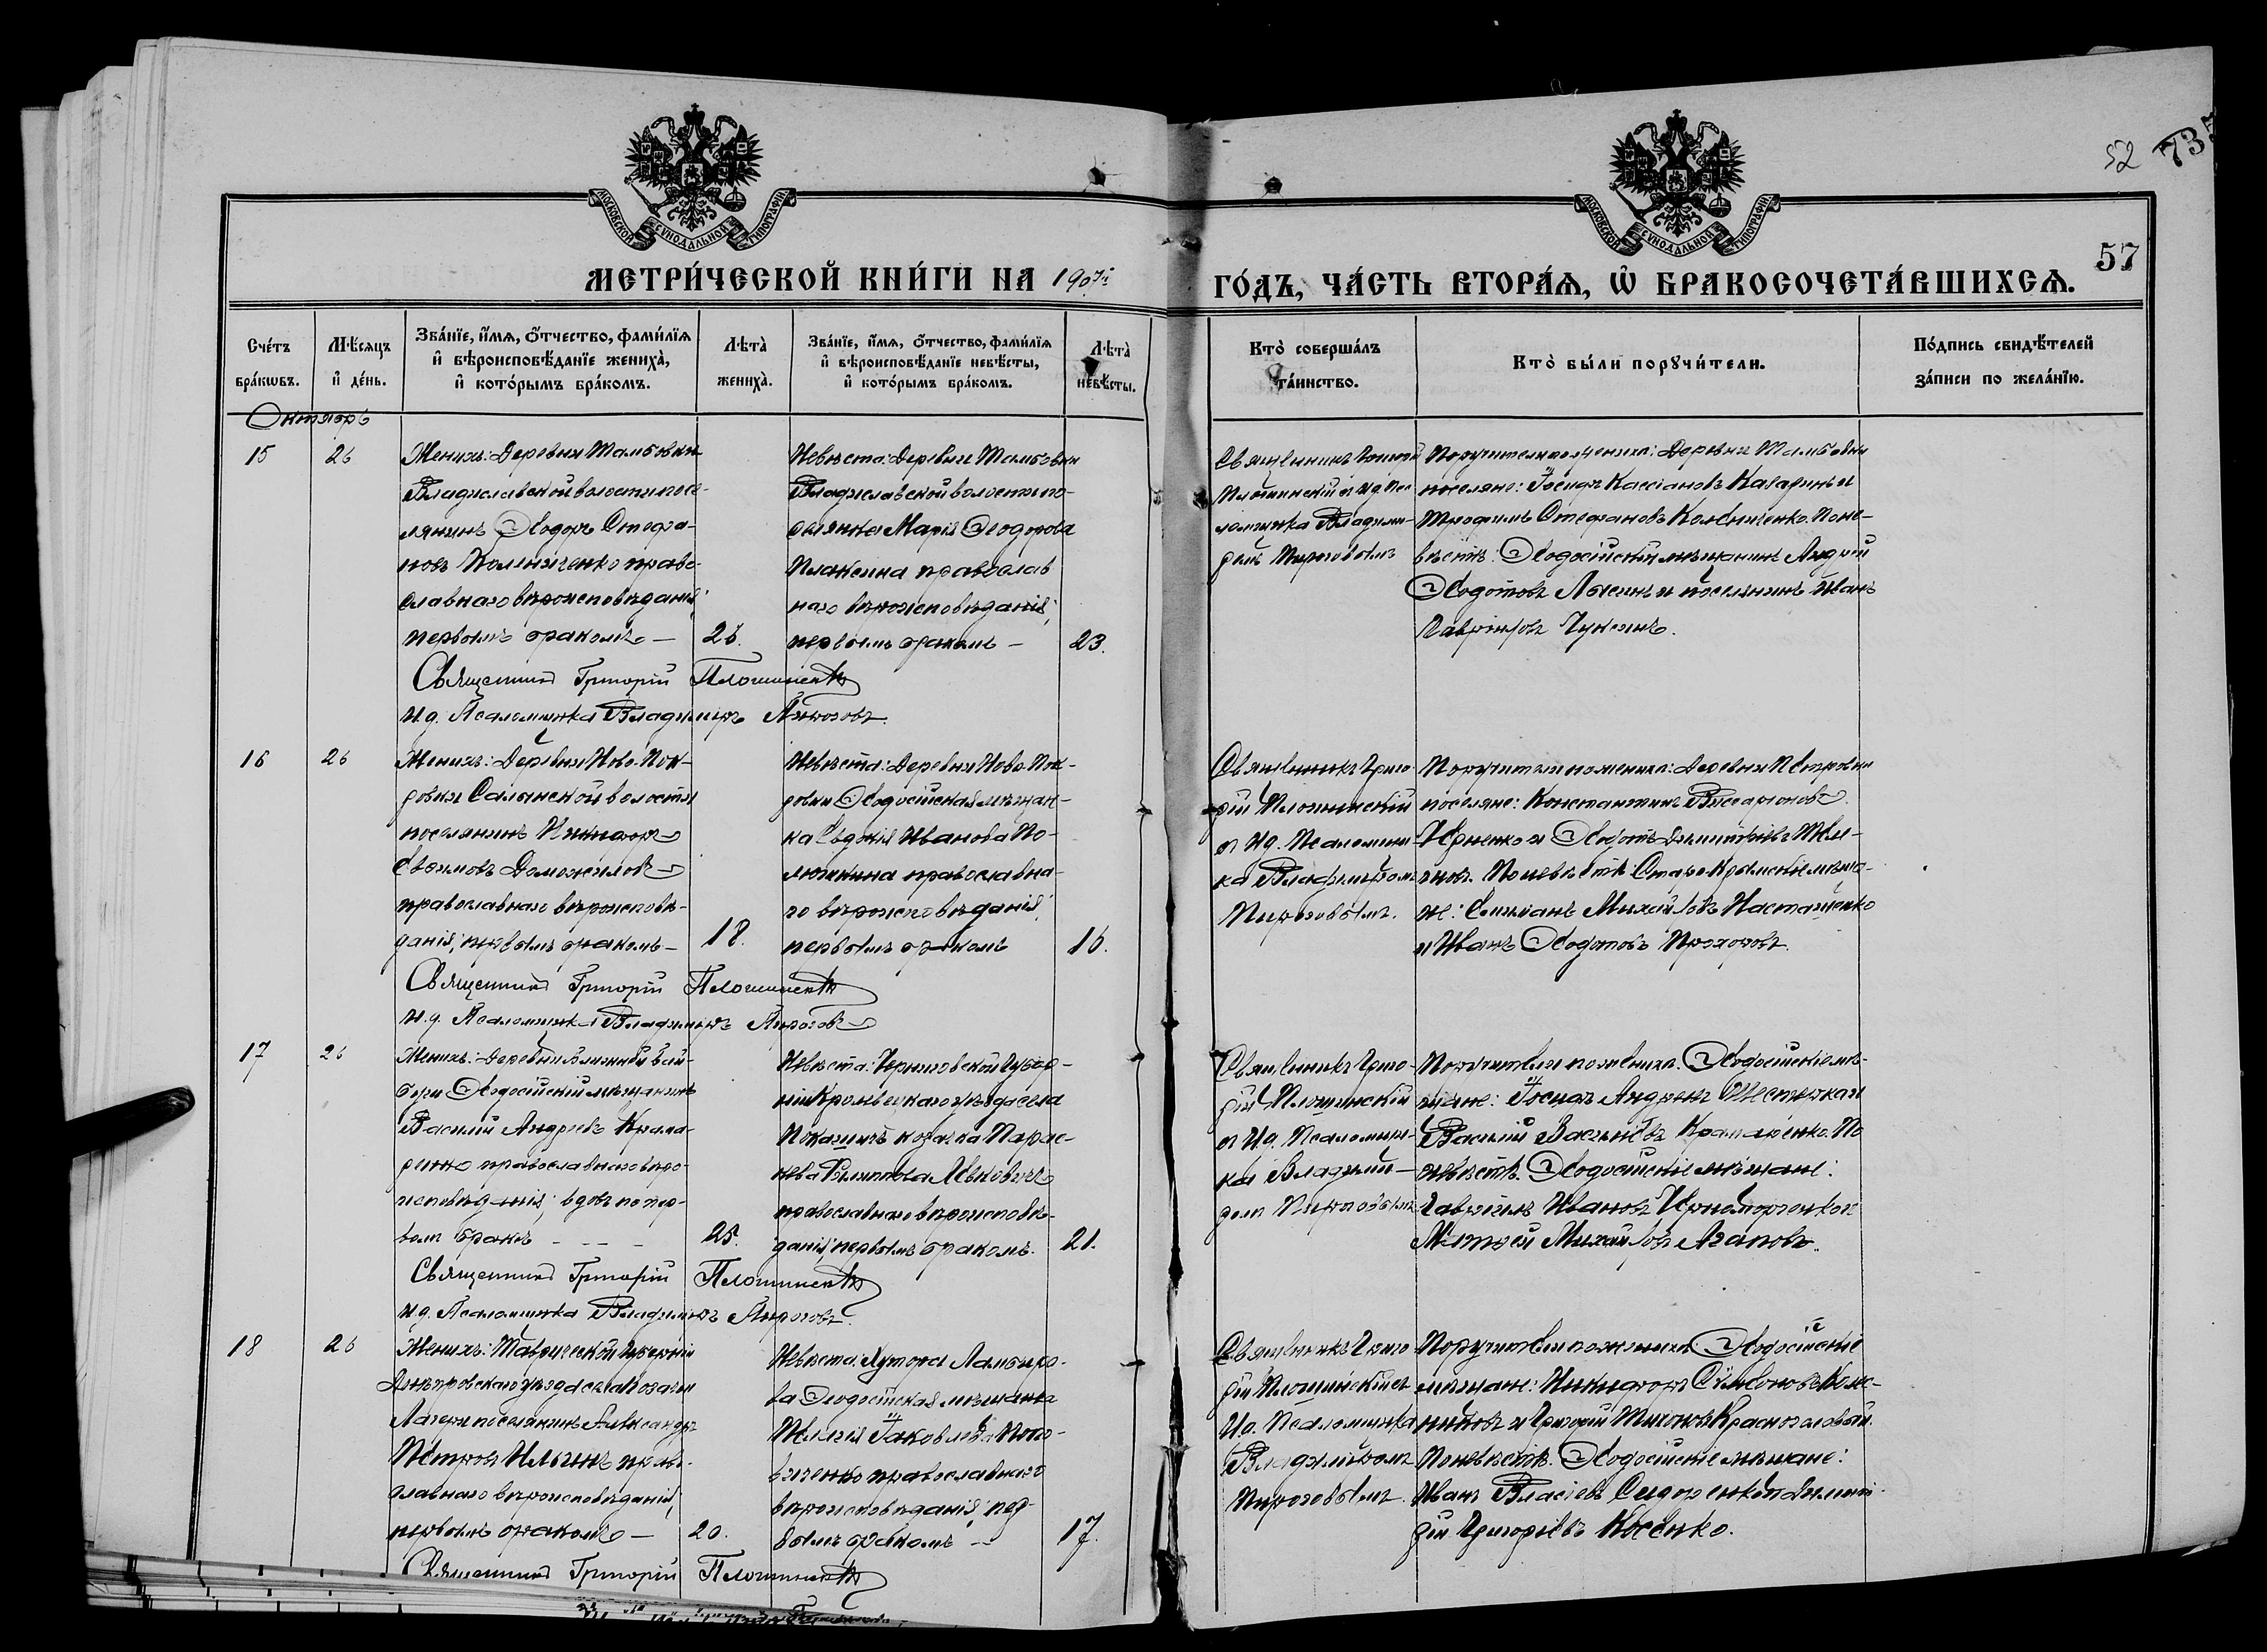 52 735
57
МОСКОВСКОЙ СѴНОДАЛЬНОЙ ТИПОГРАФІИ
МОСКОВСКОЙ СѴНОДАЛЬНОЙ ТИПОГРАФІИ
МЕТРИ́ЧЕСКОЙ КНИ́ГИ НА 1907й
ГО́ДЪ, ЧА́СТЬ ВТОРА́Ѧ, Ѽ БРАКОСОЧЕТА́ВШИХСѦ.
Сче́тъ бра́кѡвъ.
Мѣ́сѧцъ и҆ де́нь.
Зва́нїе, и҆́мѧ, ѻ҆́тчество, фами́лїѧ
и҆ вѣроисповѣ́данїе жениха̀,
и҆ кото́рымъ бра́комъ.
Лѣта̀ жениха̀.
Зва́нїе, и҆́мѧ, ѻ҆́тчество, фами́лїѧ
и҆ вѣроисповѣ́данїе невѣ́сты,
и҆ кото́рымъ бра́комъ.
Лѣта̀ невѣ́сты.
Кто̀ соверша́лъ та́инство.
Кто̀ бы́ли порꙋчи́тели.
По́дпись свидѣ́телей
за́писи по жела́нїю.
Октябрь
15
26
Женихъ: Деревни Тамбовки
Владиславской волости посе-
лянинъ Ѳеодоръ Стефа-
новъ Колениченко право-
славнаго вѣроисповѣданія;
первымъ бракомъ —
26.
Невѣста: Деревни Тамбовки
Владиславской волости по-
селянка Марія Ѳеодорова
Плаксина православ
наго вѣроисповѣданія;
первымъ бракомъ —
23.
Священникъ Григорій
Плошинскій и Ид. Пса
ломщика Владими-
ромъ Пироговымъ
Поручители по женихѣ: Деревни Тамбовки
поселяне: Іосифъ Кассіановъ Кагаринъ и
Трофимъ Стефановъ Колениченко. По не-
вѣстѣ: Ѳеодосійскій мѣщанинъ Андрей
Ѳедотовъ Лысинъ и поселянинъ Иванъ
Гавріиловъ Чуксинъ.
Священникъ Григорій Плошинскій
И.д. Псаломщика Владимиръ Пироговъ.
16
26
Женихъ: Деревни Ново-Пок-
ровки Салынской волости
поселянинъ Никифоръ
Евфимовъ Доможиловъ
православнаго вѣроисповѣ-
данія; первымъ бракомъ —
18.
Невѣста: Деревни Ново-Пок-
ровки Ѳеодосійская мѣщан-
ка Евдокія Иванова По-
люшкина православна-
го вѣроисповѣданія;
первымъ бракомъ
16.
Священникъ Григо-
рій Плошинскій
и Ид. Псаломщи-
ка Владиміромъ
Пироговымъ.
Поручители по женихѣ: Деревни Петровки
поселяне: Константинъ Виссаріоновъ
Черненко и Ѳедотъ Димитріевъ Тели-
гновъ. По невѣстѣ: Старо-Крымскіе мѣща-
не: Симеанъ Михайловъ Насташенко
и Иванъ Ѳедотовъ Прохоровъ.
Священникъ Григорій Плошинскій
И.д. Псаломщика Владимиръ Пироговъ
17
26
Женихъ: Деревни Ближней Бай-
буги Ѳеодосійскій мѣщанинъ
Василій Андреевъ Крама-
ренко православнаго вѣро-
исповѣданія; вдовъ по пер-
вомъ бракѣ - - -
25.
Невѣста: Черниговской Губер-
ніи Кролевецкаго уѣзда села
Покашичъ козачка Парас-
кева Филиппова Левковичъ
православнаго вѣроисповѣ-
данія; первымъ бракомъ.
21.
Священникъ Григо-
рій Плошинскій
и Ид. Псаломщи-
ка Владимі-
ромъ Пироговымъ
Поручители по женихѣ: Ѳеодосійскіе мѣ-
щане: Іосифъ Андреевъ Шестерка и
Василій Васильевъ Крамаренко. По
невѣстѣ: Ѳеодосійскіе мѣщане:
Гавріилъ Ивановъ Черноморченко и
Матвей Михайловъ Агаповъ.
Священникъ Григорій Плошинскій
И.д. Псаломщика Владимиръ Пироговъ.
18
26
Женихъ: Таврической Губерніи
Днѣпровскаго уѣзда села Козачьи
Лагери поселянинъ Александръ
Петровъ Ильинъ право-
славнаго вѣроисповѣданія,
первымъ бракомъ —
20.
Невѣста: Хутора Ламбиро-
ва Ѳеодосійская мѣщанка
Пелагія Іаковлева Поло-
виченко православнаго
вѣроисповѣданія; пер-
вымъ бракомъ --
17.
Священникъ Григо-
рій Плошинскій и
Ид. Псаломщика
Владиміромъ
Пироговымъ.
Поручители по женихѣ Ѳеодосійскіе
мѣщане: Никифоръ Симеоновъ Колес-
никовъ и Григорій Тихоновъ Красноголовый.
По невѣстѣ: Ѳеодосійскіе мѣщане:
Иванъ Власіевъ Сидоренко и Димит-
рій Григоріевъ Косенко.
Священникъ Григорій Плошинскій